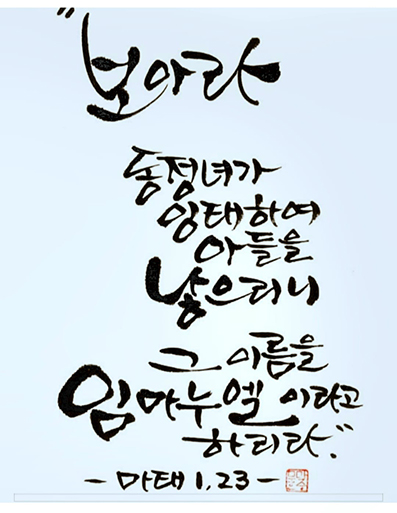 "보아라
동정녀가
잉태하여
아들을
낳으리니
그 이름을
임마누엘 이라고
하리라."
- 마태 1,23 -